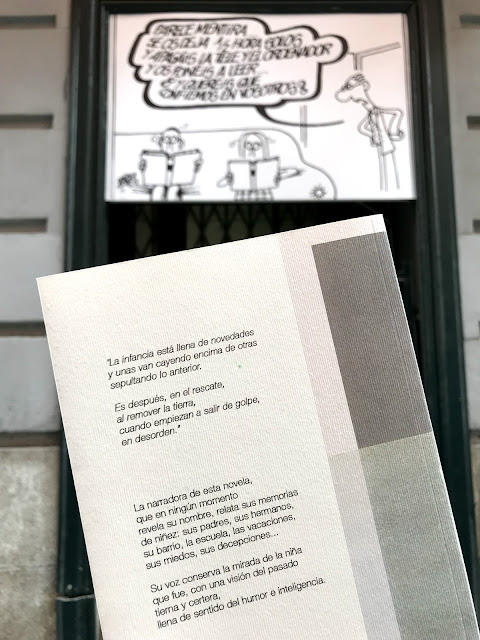 PARECE MENTIRA
SE OS DEJA 1/4 HORA SOLOS
Y APAGAIS LA TELE Y EL ORDENADOR
Y OS PONÉIS A LEER...
¿Y QUERÉIS QUE
CONFIEMOS EN VOSOTROS?
"La infancia está llena de novedades
y unas van cayendo encima de otras
sepultando lo anterior.
Es después, en el rescate,
al remover la tierra,
cuando empiezan a salir de golpe,
en desorden."
La narradora de esta novela,
que en ningún momento
revela su nombre, relata sus memorias
de niñez: sus padres, sus hermanos,
su barrio, la escuela, las vacaciones,
sus miedos, sus decepciones...
Su voz conserva la mirada de la niña
que fue, con una visión del pasado
tierna y certera,
llena de sentido del humor e inteligencia.